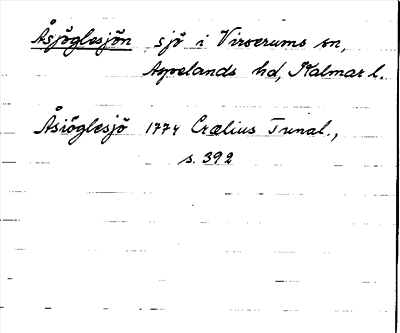 Åsjöglesjön sjö i Virserums sn,
Aspelands hd, Kalmar l.
Åsiöglesjö 1774 Crælius Tunal.,
s. 392